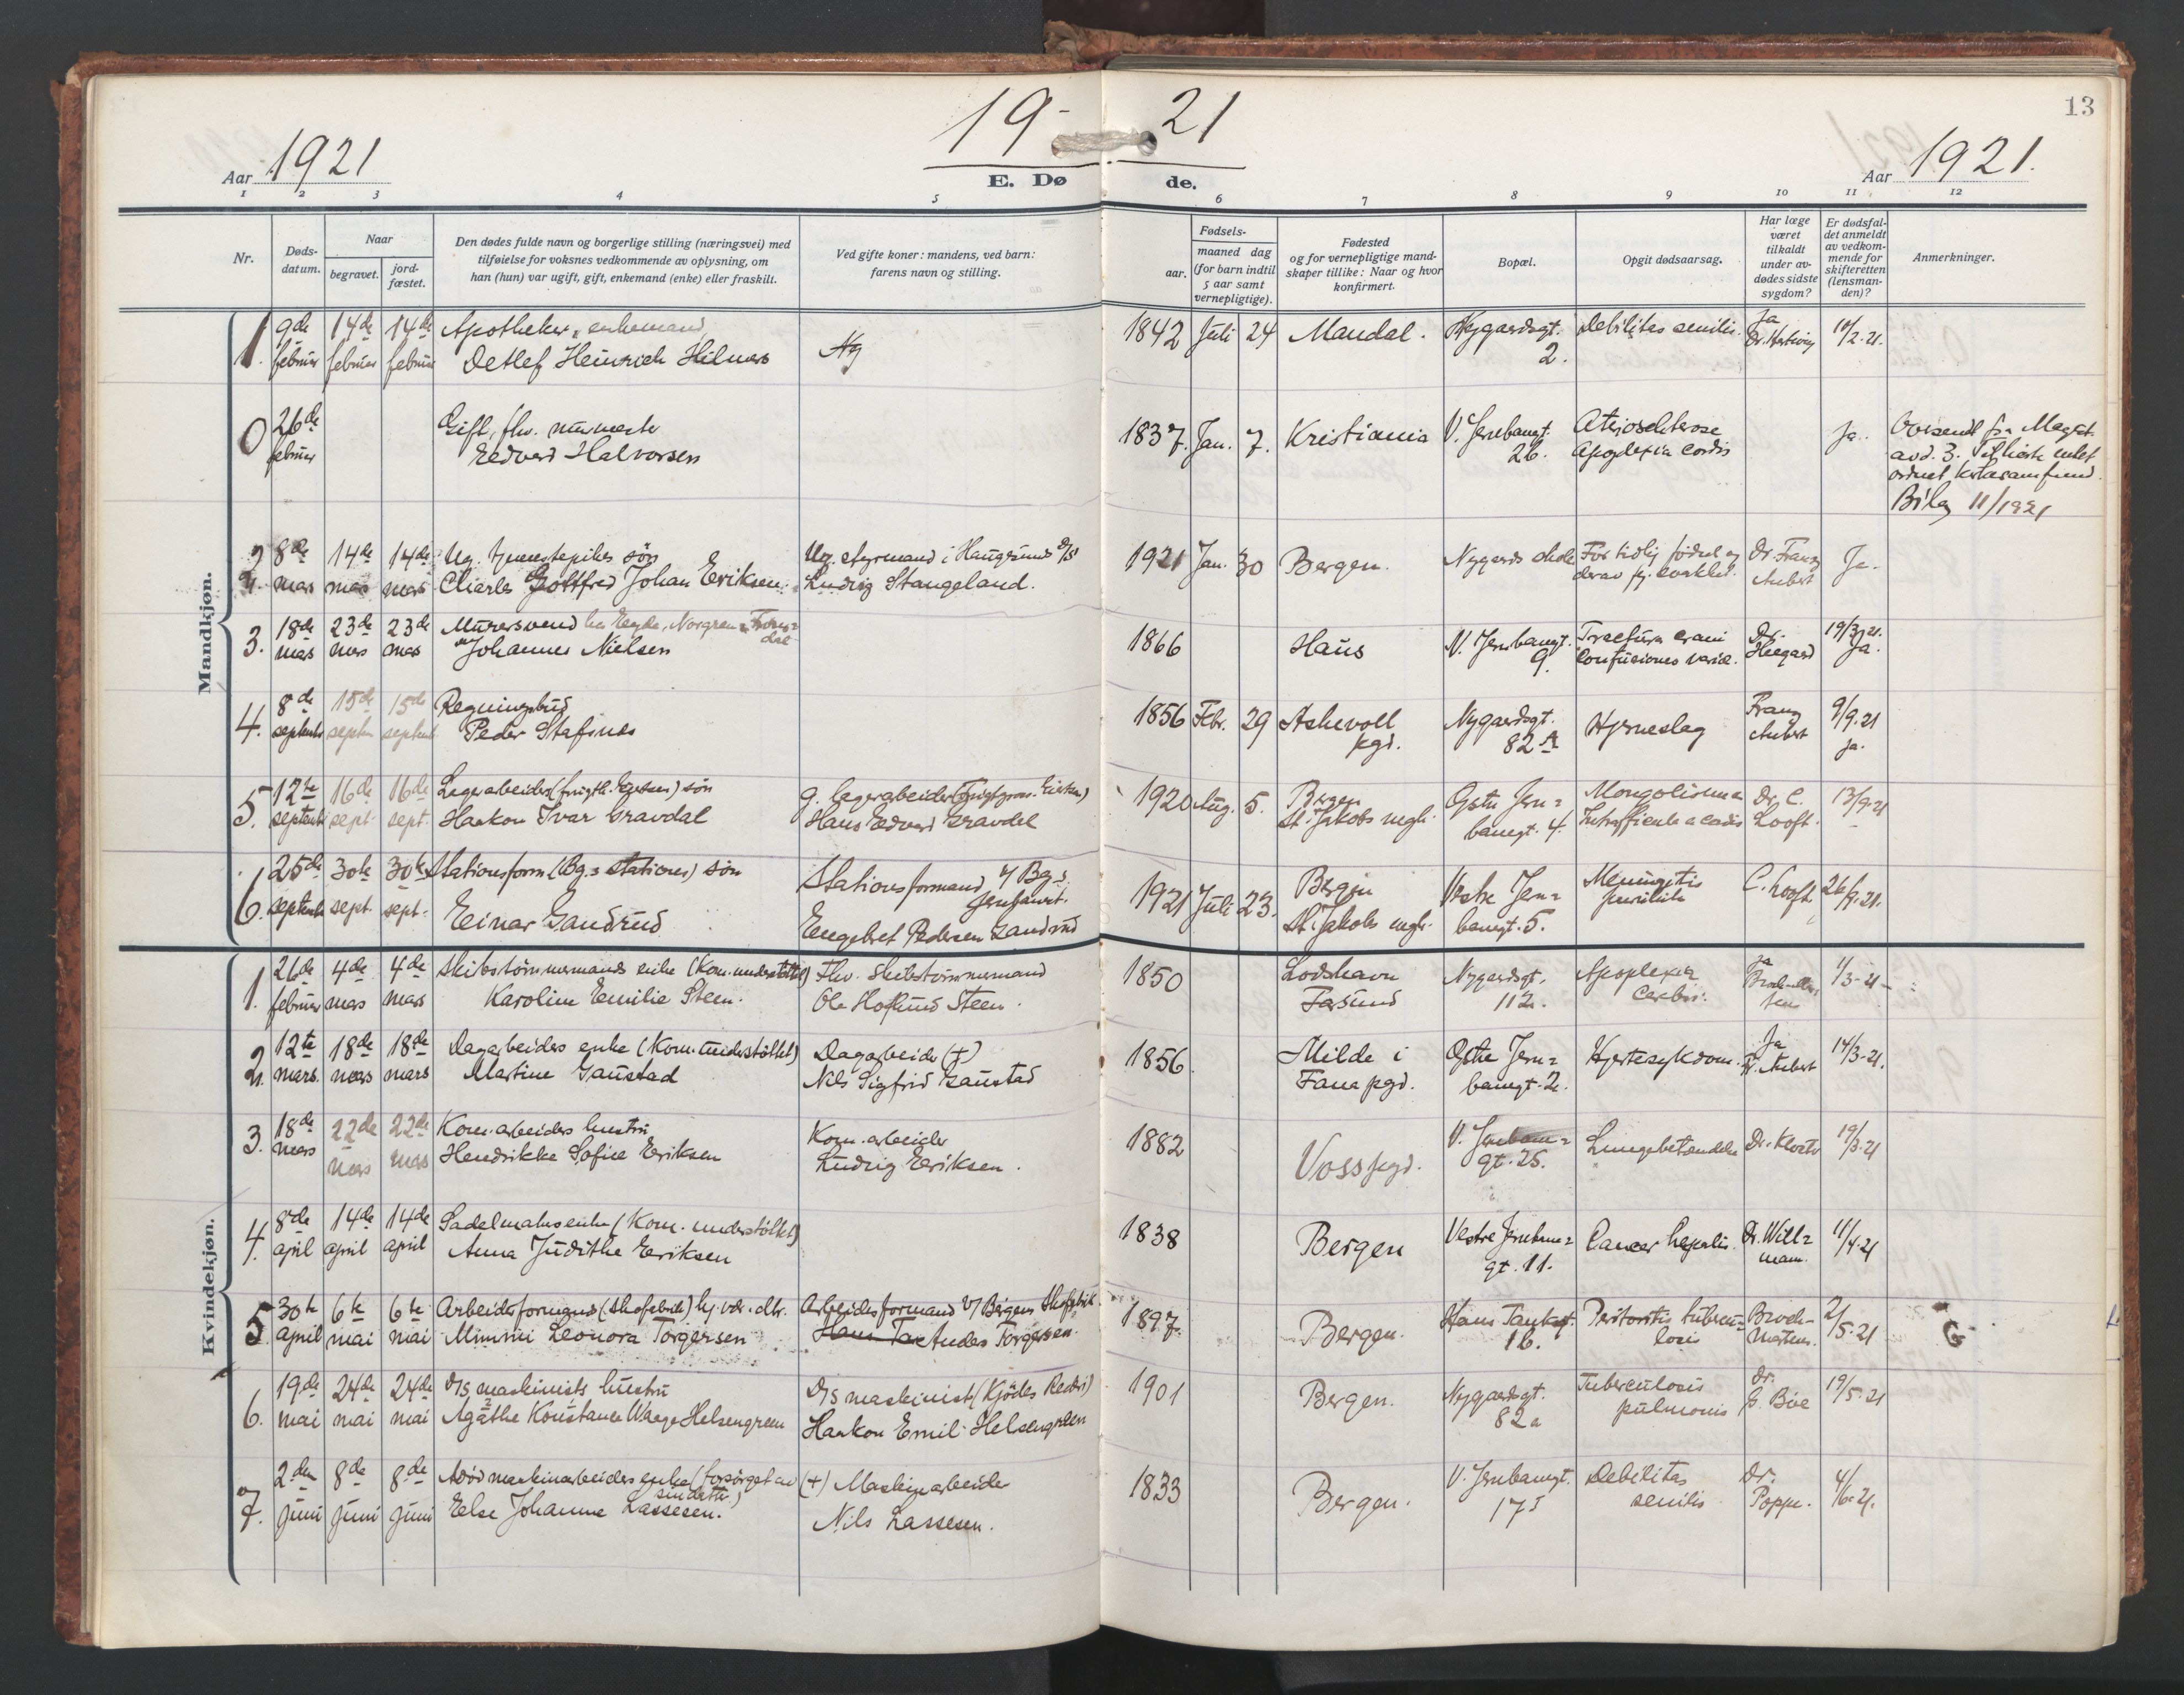 19- 21
13
Aar 1921
E. Døde.
Aar 1921.
1 2 3 4 5 6 7 8 9 10 11 12
Nr.
Døds-datum.
Naar
begravet.
jord-fæstet.
Den dødes fulde navn og borgerlige stilling (næringsvei) med
tilføielse for voksnes vedkommende av oplysning, om
han (hun) var ugift, gift, enkemand (enke) eller fraskilt.
Ved gifte koner: mandens, ved barn:
farens navn og stilling.
Fødsels-
aar.
maaned dag
(for barn indtil
5 aar samt
vernepligtige).
Fødested
og for vernepligtige mand-
skaper tillike: Naar og hvor
konfirmert.
Bopæl.
Opgit dødsaarsag.
Har læge
været
tilkaldt
under av-
dødes sidste
sygdom?
Er dødsfal-
det anmeldt
av vedkom-
mende for
skifteretten
(lensman-
den)?
Anmerkninger.
Mandkjøn.
1. 9de 14de 14de Apotheker, enkemand 1842 Juli 24 Mandal. Nygaardsgt. Debilitas senilis. Ja 10/2-21.
februar februar februar Detlef Heinrich Hilmers 2. Dr. Hertwig
0 26de Gift, fhv. murmester 1837. Jan. 7. Kristiania V. Jernbanegt. Aterosclerose Ja. Oversendt fra Magist.
februar Edvard Halvorsen 26. Apoplexia cordis avd. 3.
ordnet kirkesamfund.
Bilag 11/1921
2. 8de 14de 14de Ug. tjenestepikes søn Ug. styrmand i Haugesunds D/S 1921 Jan. 30 Bergen. Nygaards skole For tidlig fødsel og Dr. Franz Ja.
mars mars mars Charles Gottfred Johan Eriksen. Ludvig Stangeland. derav fg. svakhet. Aubert
3. 18de 23de 23de Murersvend 1866 Haus V. Jernbanegt. Fractura crani Dr. 19/3-21.
mars mars mars Johannes Nielsen 9. Contusiones variæ. Heegaard Ja.
4. 8de 15de 15de Regningsbud 1856 Febr. 29 Askevoll Nygaardsgt. Hjerneslag Franz 9/9.21
september septem septem Peder Stafsnes pgd. 82 A Aubert ja.
5. 12te 16de 16de Lagerarbeiders søn g. lagerarbeider 1920 Aug. 5. Bergen Østre Jern= Mongolisme Dr. C. 13/9-21
september sept. sept. Haakon Ivar Gravdal Hans Edvard Gravdal St. Jakobs mgh. banegt. 4. Insufficientia cordis Looft.
6. 25de 30te 30te Stationsform. (Bg.s stationen) søn Stationsformand v/ Bg.s 1921 Juli 23. Bergen Vestre Jern= Meningitis C. Looft. 26/9.21.
september sept. sept. Einar Sandrud Jernbanest. St. Jakobs mgh. banegt. 5. purulenta
Engebret Pedersen Sandrud
Kvindekjøn.
1. 26de 4de 4de Skibstømmermands enke (Kom. understøttet) Fhv. Skibstømmermand 1850 Lodshavn Nygaardsgt. Apoplexia ja 1/3-21
februar mars mars Karoline Emilie Steen. Ole Hoflund Steen. Farsund 112. Cerebri.
2. 12te 18de 18de Dagarbeiders enke (Kom. understøttet) Dagarbeider (+) 1856. Milde i Østre Jern= Hjertesykdom. Ja 14/3-21.
mars. mars mars Martine Gaustad Nils Sigfrid Gaustad Fana pgd. banegt. 2. Fr. Aubert
3. 18de 22de 22de Kom. arbeiders hustru Kom. arbeider 1882 Voss pgd. V. Jernbane= Lungebetændelse Dr. Kloster 19/3-21
mars mars mars Hendrikke Sofie Eriksen Ludvig Eriksen. gt. 25.
4. 8de 14de 14de Sadelmakersenke (Kom. understøttet) 1838 Bergen Vestre Jernbane= Cancer hepatis. Dr. Will= 11/4-21
april april april Anna Judithe Eriksen gt. 11. mann.
5. 30te 6te 6te Arbeidsformands (Skofabrik) hj. vær. dtr. Arbeidsformand v/ Bergens Skofabrik 1897. Bergen. Hans Tanksgt. Peritonitis tubercu= Broch- 2/5-21 G
april mai mai Mimmi Leonora Torgersen Anders Torgersen. 16. losis Mortens.
6. 19de 24de 24de D/S maskinists hustru D/S maskinist (Kjødes Rederi) 1901 Bergen. Nygaardsgt. Tuberculosis Dr. 19/5-21
mai mai mai Agathe Konstance Waage Helsengreen Haakon Emil Helsengreen 82a pulmonis G. Bøe
7. 2den 8de 8de Avdød maskinarbeiders enke (forsørget av (+) Maskinarbeider 1833 Bergen. V. Jernbanegt. Debilitas Dr. 4/6-21.
juni juni juni Else Johanne Lassesen. sin datter) Nils Lassesen. 17 I senilis Poppe.